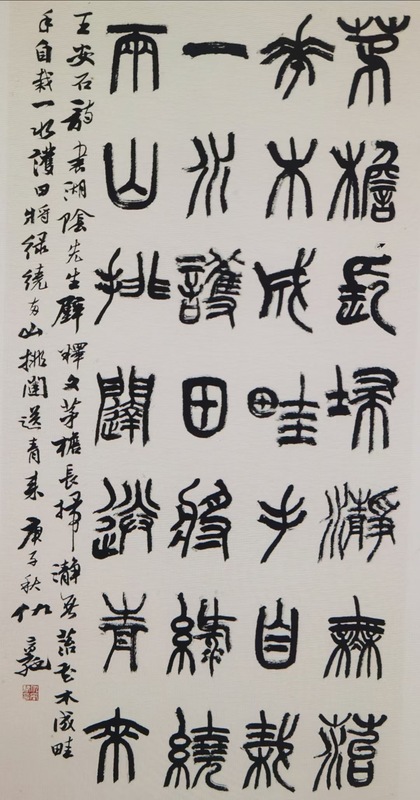 茅檐長埽瀞無菭
華木成畦手自栽
一水護田將綠繞
兩山排闥送青來
王安石詩書湖陰先生壁釋文茅檐長掃瀞無苔花木成畦
手自栽一水護田將绿繞兩山排闥送青來庚子秋仇